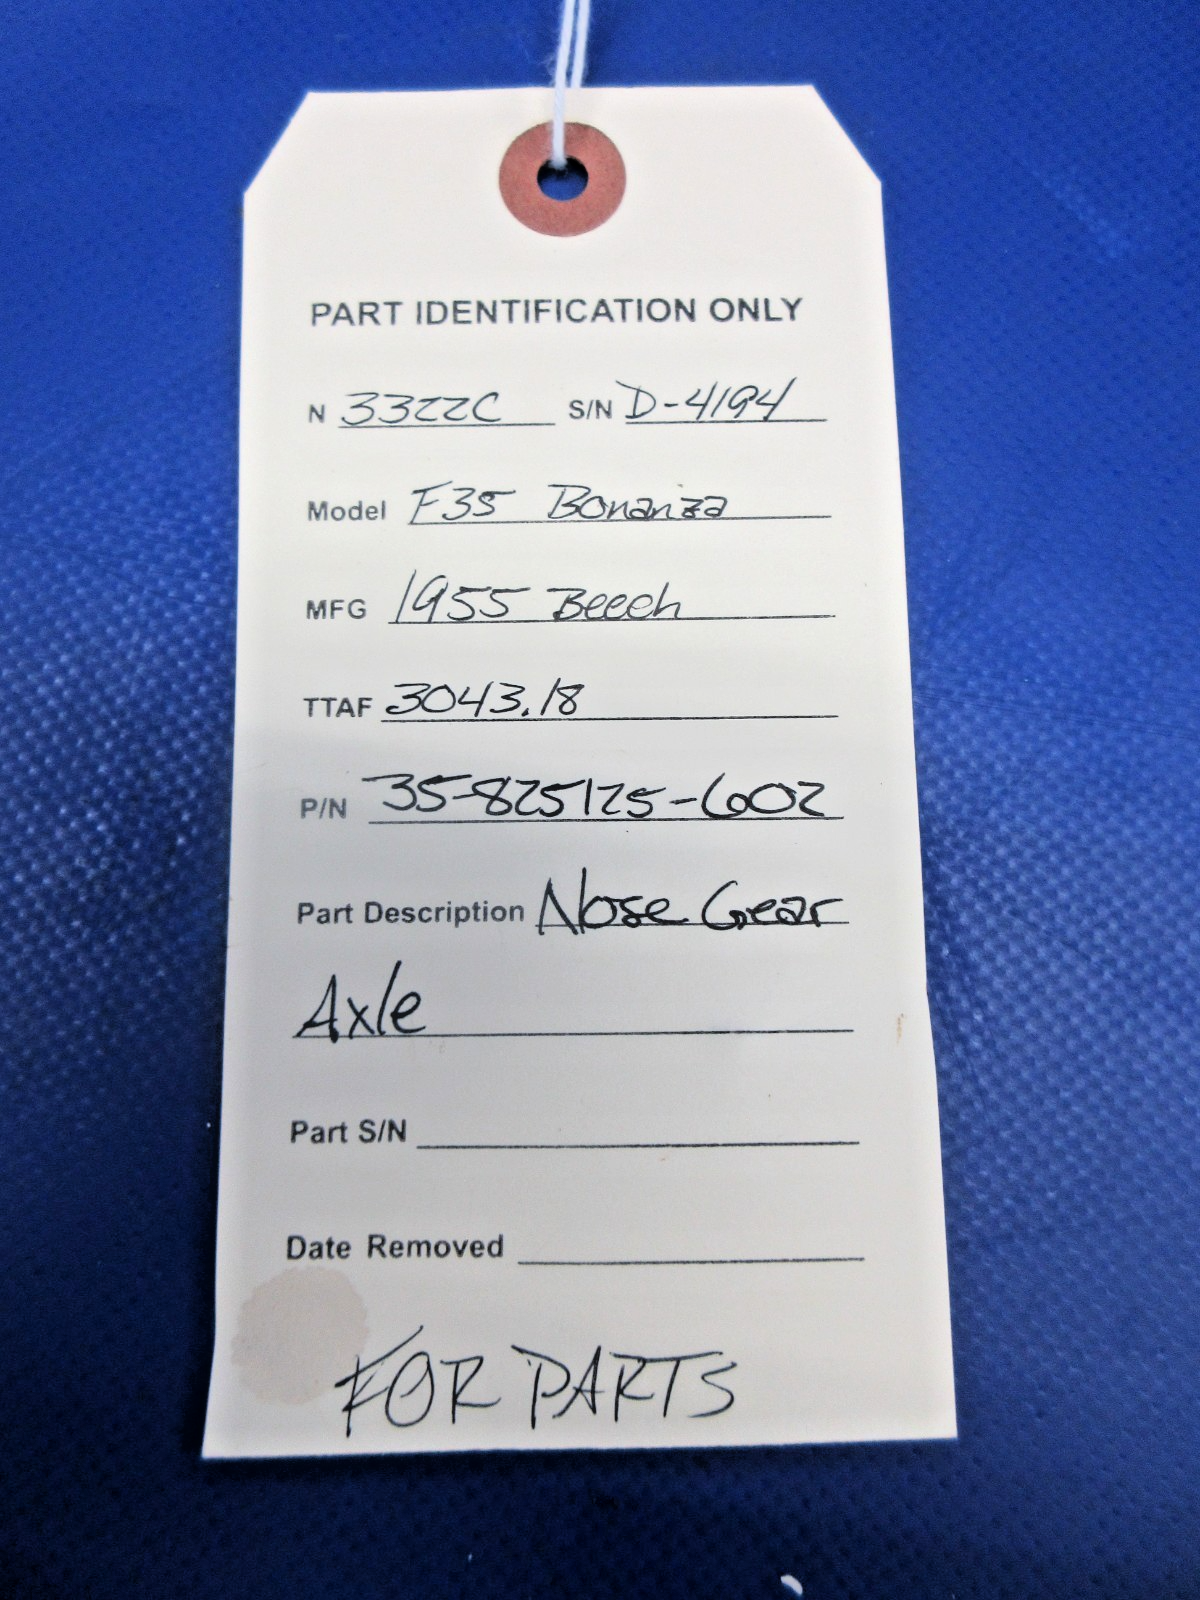 PART IDENTIFICATION ONLY
N 3322C S/N D-4194
Model F35 Bonanza
MFG 1955 Beech
TTAF 3043.18
P/N 35-825125-602
Part Description Nose Gear
Axle
Part S/N
Date Removed
FOR PARTS